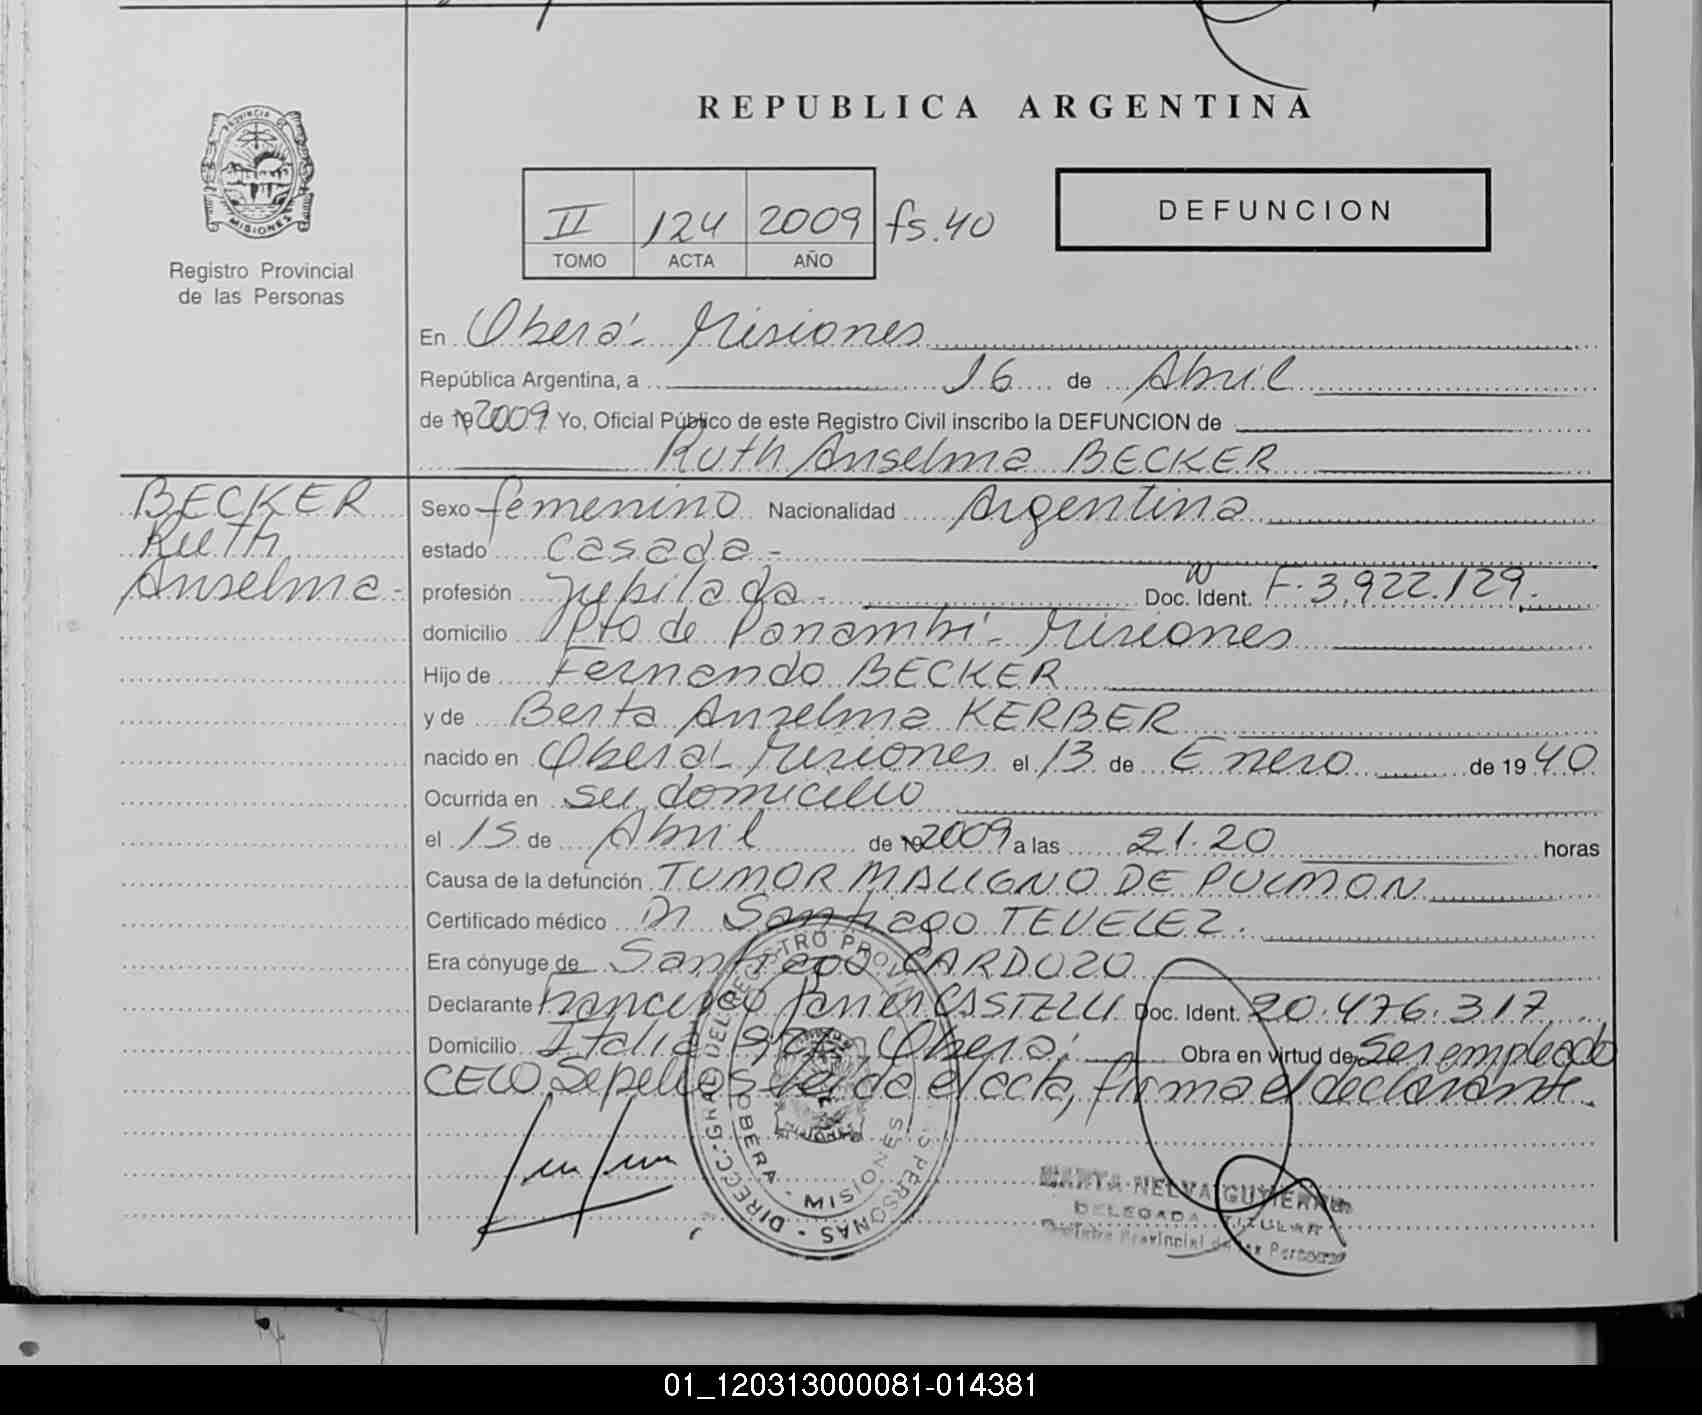 REPUBLICA ARGENTINA
PROVINCIA DE
MISIONES
Registro Provincial
de las Personas
II 124 2009 fs. 40
TOMO ACTA AÑO
DEFUNCION
En Oberá - Misiones
República Argentina, a 16 de Abril
de 19 2009 Yo, Oficial Público de este Registro Civil inscribo la DEFUNCION de
Ruth Anselma BECKER
BECKER
Ruth
Anselma -
Sexo femenino Nacionalidad Argentina
estado casada -
profesión Jubilada - Doc. Ident. F. 3.922.129.
domicilio Pto de Panambí - Misiones
Hijo de Fernando BECKER
y de Berta Anselma KERBER
nacido en Oberá - Misiones el 13 de Enero de 19 40
Ocurrida en su domicilio
el 15 de Abril de 19 2009 a las 21.20 horas
Causa de la defunción TUMOR MALIGNO DE PULMON
Certificado médico Dr Santiago TEVELEZ.
Era cónyuge de Santiago CARDOZO
Declarante Francisco CASTELLI Doc. Ident. 20.476.317
Domicilio Italia Oberá. Obra en virtud de ser empleado
CELO Sepelios leída el acta, firma el declarante.
DIRECC. GRAL DEL REGISTRO PROVINC. PERSONAS
OBERA - MISIONES
MARTA NELVA GUTIERREZ
DELEGADA TITULAR
Registro Provincial de las Personas
01_120313000081-014381